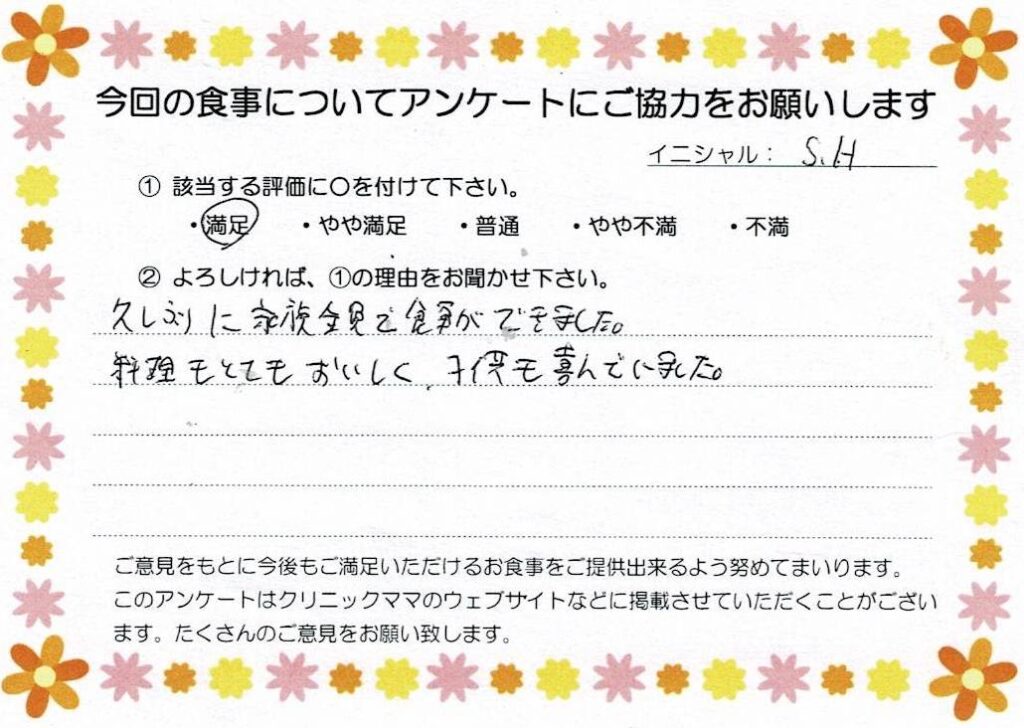 今回の食事についてアンケートにご協力をお願いします
イニシャル： S.H
① 該当する評価に〇を付けて下さい。
・満足 ・やや満足 ・普通 ・やや不満 ・不満
② よろしければ、①の理由をお聞かせ下さい。
久しぶりに家族全員で食事ができました。
料理もとてもおいしく、子供も喜んでいました。
ご意見をもとに今後もご満足いただけるお食事をご提供出来るよう努めてまいります。
このアンケートはクリニックママのウェブサイトなどに掲載させていただくことがござい
ます。たくさんのご意見をお願い致します。